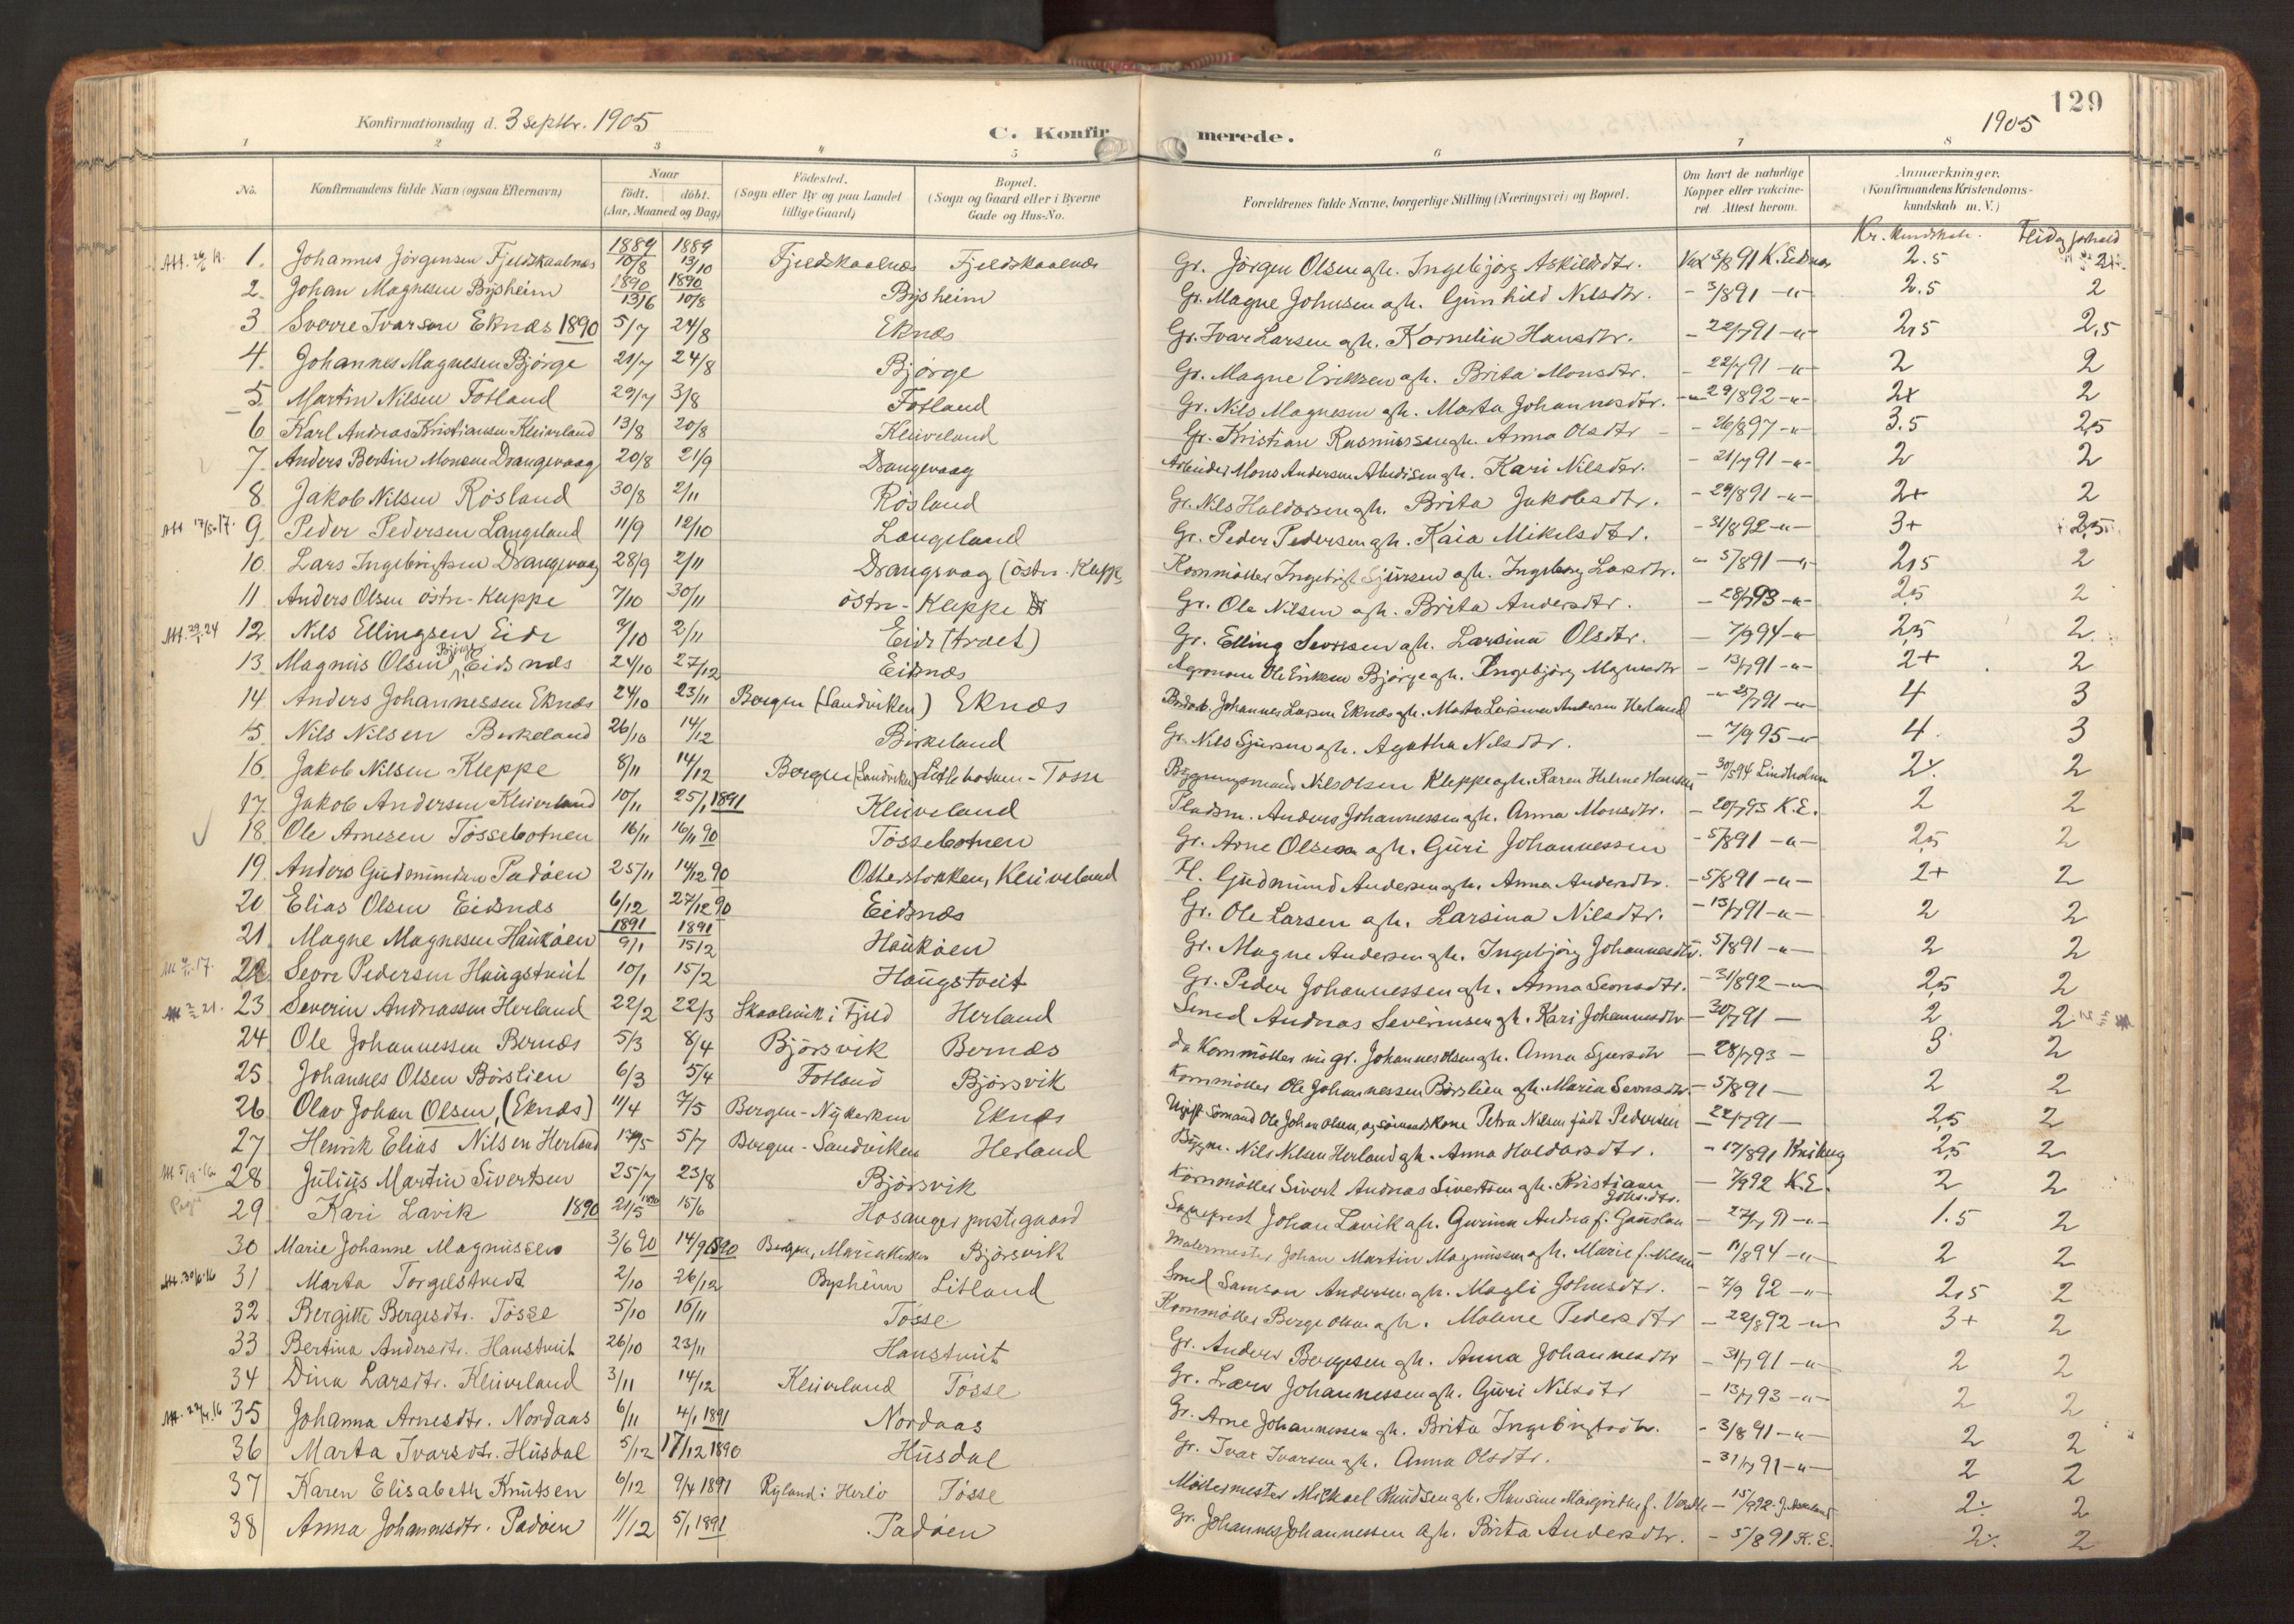 129
Konfirmationsdag d. 3 Septbr. 1905
C. Konfirmerede.
1905
1 2 3 4 5 6 7 8
No.
Konfirmandens fulde Navn (ogsaa Efternavn)
Naar
født. døbt.
(Aar, Maaned og Dag)
Fødested.
(Sogn eller By og paa Landet
tillige Gaard)
Bopæl.
(Sogn og Gaard eller i Byerne
Gade og Hus-No.
Forældrenes fulde Navne, borgerlige Stilling (Næringsvei) og Bopæl.
Om havt de naturlige
Kopper eller vakcine-
ret Attest herom.
Anmærkninger.
(Konfirmandens Kristendoms-
kundskab m. V.)
Kr. kundskab. Flid og forhold
1. Johannes Jörgensen Fjeldskaalnæs 1889 10/8 1889 13/10 Fjeldskaalnæs Fjeldskaalnæs Gr. Jörgen Olsen og h. Ingebjörg Askildsdtr. Vac 3/8 91 K. Eidnæs 2.5 2+
2. Johan Magnesen Bysheim 1890 13/6 1890 10/8 Bysheim Gr. Magne Johnsen og h. Gunhild Nilsdtr. - 3/8 91 -"- 2.5 2
3 Sverre Ivarson Eknæs 1890 5/7 24/8 Eknæs Gr. Ivar Larsen og h. Kornelia Hansdtr. - 22/7 91 -"- 2,5 2,5
4. Johannes Magnesen Bjørge 21/7 24/8 Bjørge Gr. Magne Eriksen og h. Brita Monsdtr. - 22/7 91 -"- 2 2
5. Martin Nilsen Fotland 29/7 3/8 Fotland Gr. Nils Magnesen og h. Marta Johannesdtr. - 29/8 92 -"- 2+ 2
6 Karl Andreas Kristiansen Kleiveland 13/8 20/8 Kleiveland Gr. Kristian Rasmussen og h. Anna Olsdtr - 26/8 97 -"- 3.5 2,5
7. Anders Bertin Monsen Drangevaag 20/8 21/9 Drangevaag Arbeider Mons Andersen og h. Kari Nilsdtr. - 21/7 91 -"- 2 2
8. Jakob Nilsen Rösland 30/8 2/11 Rösland Gr. Nils Haldorsen og h. Brita Jakobsdtr. - 29/8 91 -"- 2+ 2
Att 17/5.17. 9. Peder Pedersen Langeland 11/9 12/10 Langeland Gr. Peder Pedersen og h. Kaia Mikelsdtr. - 31/8 92 -"- 3+ 2,5
10. Lars Ingebrigtsen Drangevaag 28/9 2/11 Drangevaag (östre-Kleppe Kornmöller Ingebrigt Sjursen og h. Ingeborg Larsdtr. - 5/8 91 -"- 2,5 2
11. Anders Olsen östre-Kleppe 7/10 30/11 östre-Kleppe Gr. Ole Nilsen og h. Brita Andersdtr. - 28/7 93 -"- 2,5 2
12. Nils Ellingsen Eide 9/10 2/11 Eide (træet) Gr. Elling Sevrisen og h. Larsina Olsdtr. - 7/9 94 -"- 2,5 2
13. Magnus Olsen Bjørge Eidsnæs 24/10 27/12 Eidsnæs Agronom Ole Eriksen Bjørge og h. Ingebjörg Magnesdtr - 13/7 91 -"- 2+ 2
14 Anders Johannessen Eknæs 24/10 23/11 Bergen (Sandviken) Eknæs Johannes Larsen Eknæs og h. Marta Larsine Andersen Herland - 25/7 91 -"- 4 3
15. Nils Nilsen Birkeland 26/10 14/12 Birkeland Gr. Nils Sjursen og h. Agatha Nilsdtr. - 7/9 95 -"- 4 3
16. Jakob Nilsen Kleppe 8/11 14/12 Bergen (Sandviken) Litlebotnen-Tosse Bygningsmand Nils Olsen Kleppe og h. Karen Helene Hansen - 30/5 94 Lindholm 2. 2
17. Jakob Andersen Kleiveland 10/11 25/1 1891 Kleiveland Pladsm. Anders Johannessen og h. Anna Monsdtr. - 20/7 95 K.E. 2 2
18. Ole Arnesen Tössebotnen 16/11 16/11 90 Tössebotnen Gr. Arne Olsen og h. Guri Johannessen - 5/8 91 -"- 2,5 2
19. Anders Gudmundsen Padöen 25/11 14/12 90 Otterstokken, Kleiveland H. Gudmund Andersen og h. Anna Andersdtr. - 5/8 91 -"- 2+ 2
20 Elias Olsen Eidsnæs 6/12 27/12 90 Eidsnæs Gr. Ole Larsen og h. Larsina Nilsdtr. - 13/7 91 -"- 2 2
21. Magne Magnesen Haukåen 1891 9/1 1891 15/2 Haukåen Gr. Magne Andersen og h. Ingebjörg Johannesdtr. - 5/8 91 -"- 2 2
22. Sevre Pedersen Haugstveit 10/1 15/2 Haugstveit Gr. Peder Johannessen og h. Anna Sevrisdtr. - 31/8 92 -"- 2,5 2
23 Severin Andreassen Herland 22/2 22/3 Skaalevik i Fjeld Herland Smed Andreas Severinsen og h. Kari Johannesdtr - 30/7 91 - 2 2
24 Ole Johannessen Bernæs 5/3 8/4 Björsvik Bernæs Kornmöller nu gr. Johannes Olsen og h. Anna Sjursdtr - 28/7 93 - 3 2
25 Johannes Olsen Börslien 6/3 5/4 Fotland Björsvik Kornmöller Ole Johannessen Börslien og h. Maria Sevrisdtr. - 5/8 91 - 2 2
26 Olav Johan Olsen, (Eknæs) 11/4 7/5 Bergen-Nykirken Eknæs Ugift Sömand Ole Johan Olsen, og sömandskone Petra Nilsen född Pedersen - 22/7 91 - 2,5 2
27 Henrik Elias Nilsen Herland 17/5 5/7 Bergen-Sandviken Herland Bygm. Nils Nilsen Herland og h. Anna Haldorsdtr. - 17/8 91 2,5 2
28 Julius Martin Sivertsen 25/7 23/8 Björsvik Kornmöller Sivert Andreas Sivertsen og h. Kristiane Johs.dtr. - 7/9 92 K.E. 2 2
Pige
29 Kari Lavik 1890 21/5 1890 15/6 Hosanger prestegaard Sogneprest Johan Lavik og h. Gurina Andrea f. Gauslaa - 27/7 91 -"- 1.5 2
30 Marie Johanne Magnussen 3/6 90 14/9 1890 Bergen, Mariakirken Björsvik Malermester Johan Martin Magnussen og h. Marie f. Nilsen - 11/8 94 -"- 2 2
Att. 30/6.16 31. Marta Torgilstvedt 2/10 26/12 Bysheim Litland Smed Samson Andersen og h. Magli Johnsdtr. - 7/9 92 -"- 2,5 2
32 Bergitte Bergesdtr. Tösse 5/10 16/11 Tösse Kornmöller Berge Olsen og h. Malene Pedersdtr - 22/8 92 -"- 3+ 2
33 Bertina Andersdtr. Hanstveit 26/10 23/11 Hanstveit Gr. Anders Bergesen og h. Anna Johannesdtr - 31/7 91 -"- 2 2
34 Dina Larsdtr. Kleiveland 3/11 14/12 Kleiveland Tösse Gr. Lars Johannessen og h. Guri Nilsdtr - 13/7 93 -"- 2 2
35 Johanna Arnesdtr. Nordaas 6/11 4/1 1891 Nordaas Gr. Arne Johannessen og h. Brita Ingebrigtsdtr. - 3/8 91 -"- 2 2
36 Marta Ivarsdtr. Husdal 5/12 17/12 1890 Husdal Gr. Ivar Ivarsen og h. Anna Olsdtr. - 31/7 91 -"- 2 2
37 Karen Elisabeth Knutsen 6/12 9/4 1891 Ryland i Herlö Tösse Möllermester Mikael Knudsen og h. Hansine Margrethe f. - 15/9 92 2. 2
38 Anna Johannesdtr. Padöen 11/12 5/1 1891 Padöen Gr. Johannes Johannessen og h. Brita Andersdtr. - 5/8 91 K.E. 2. 2